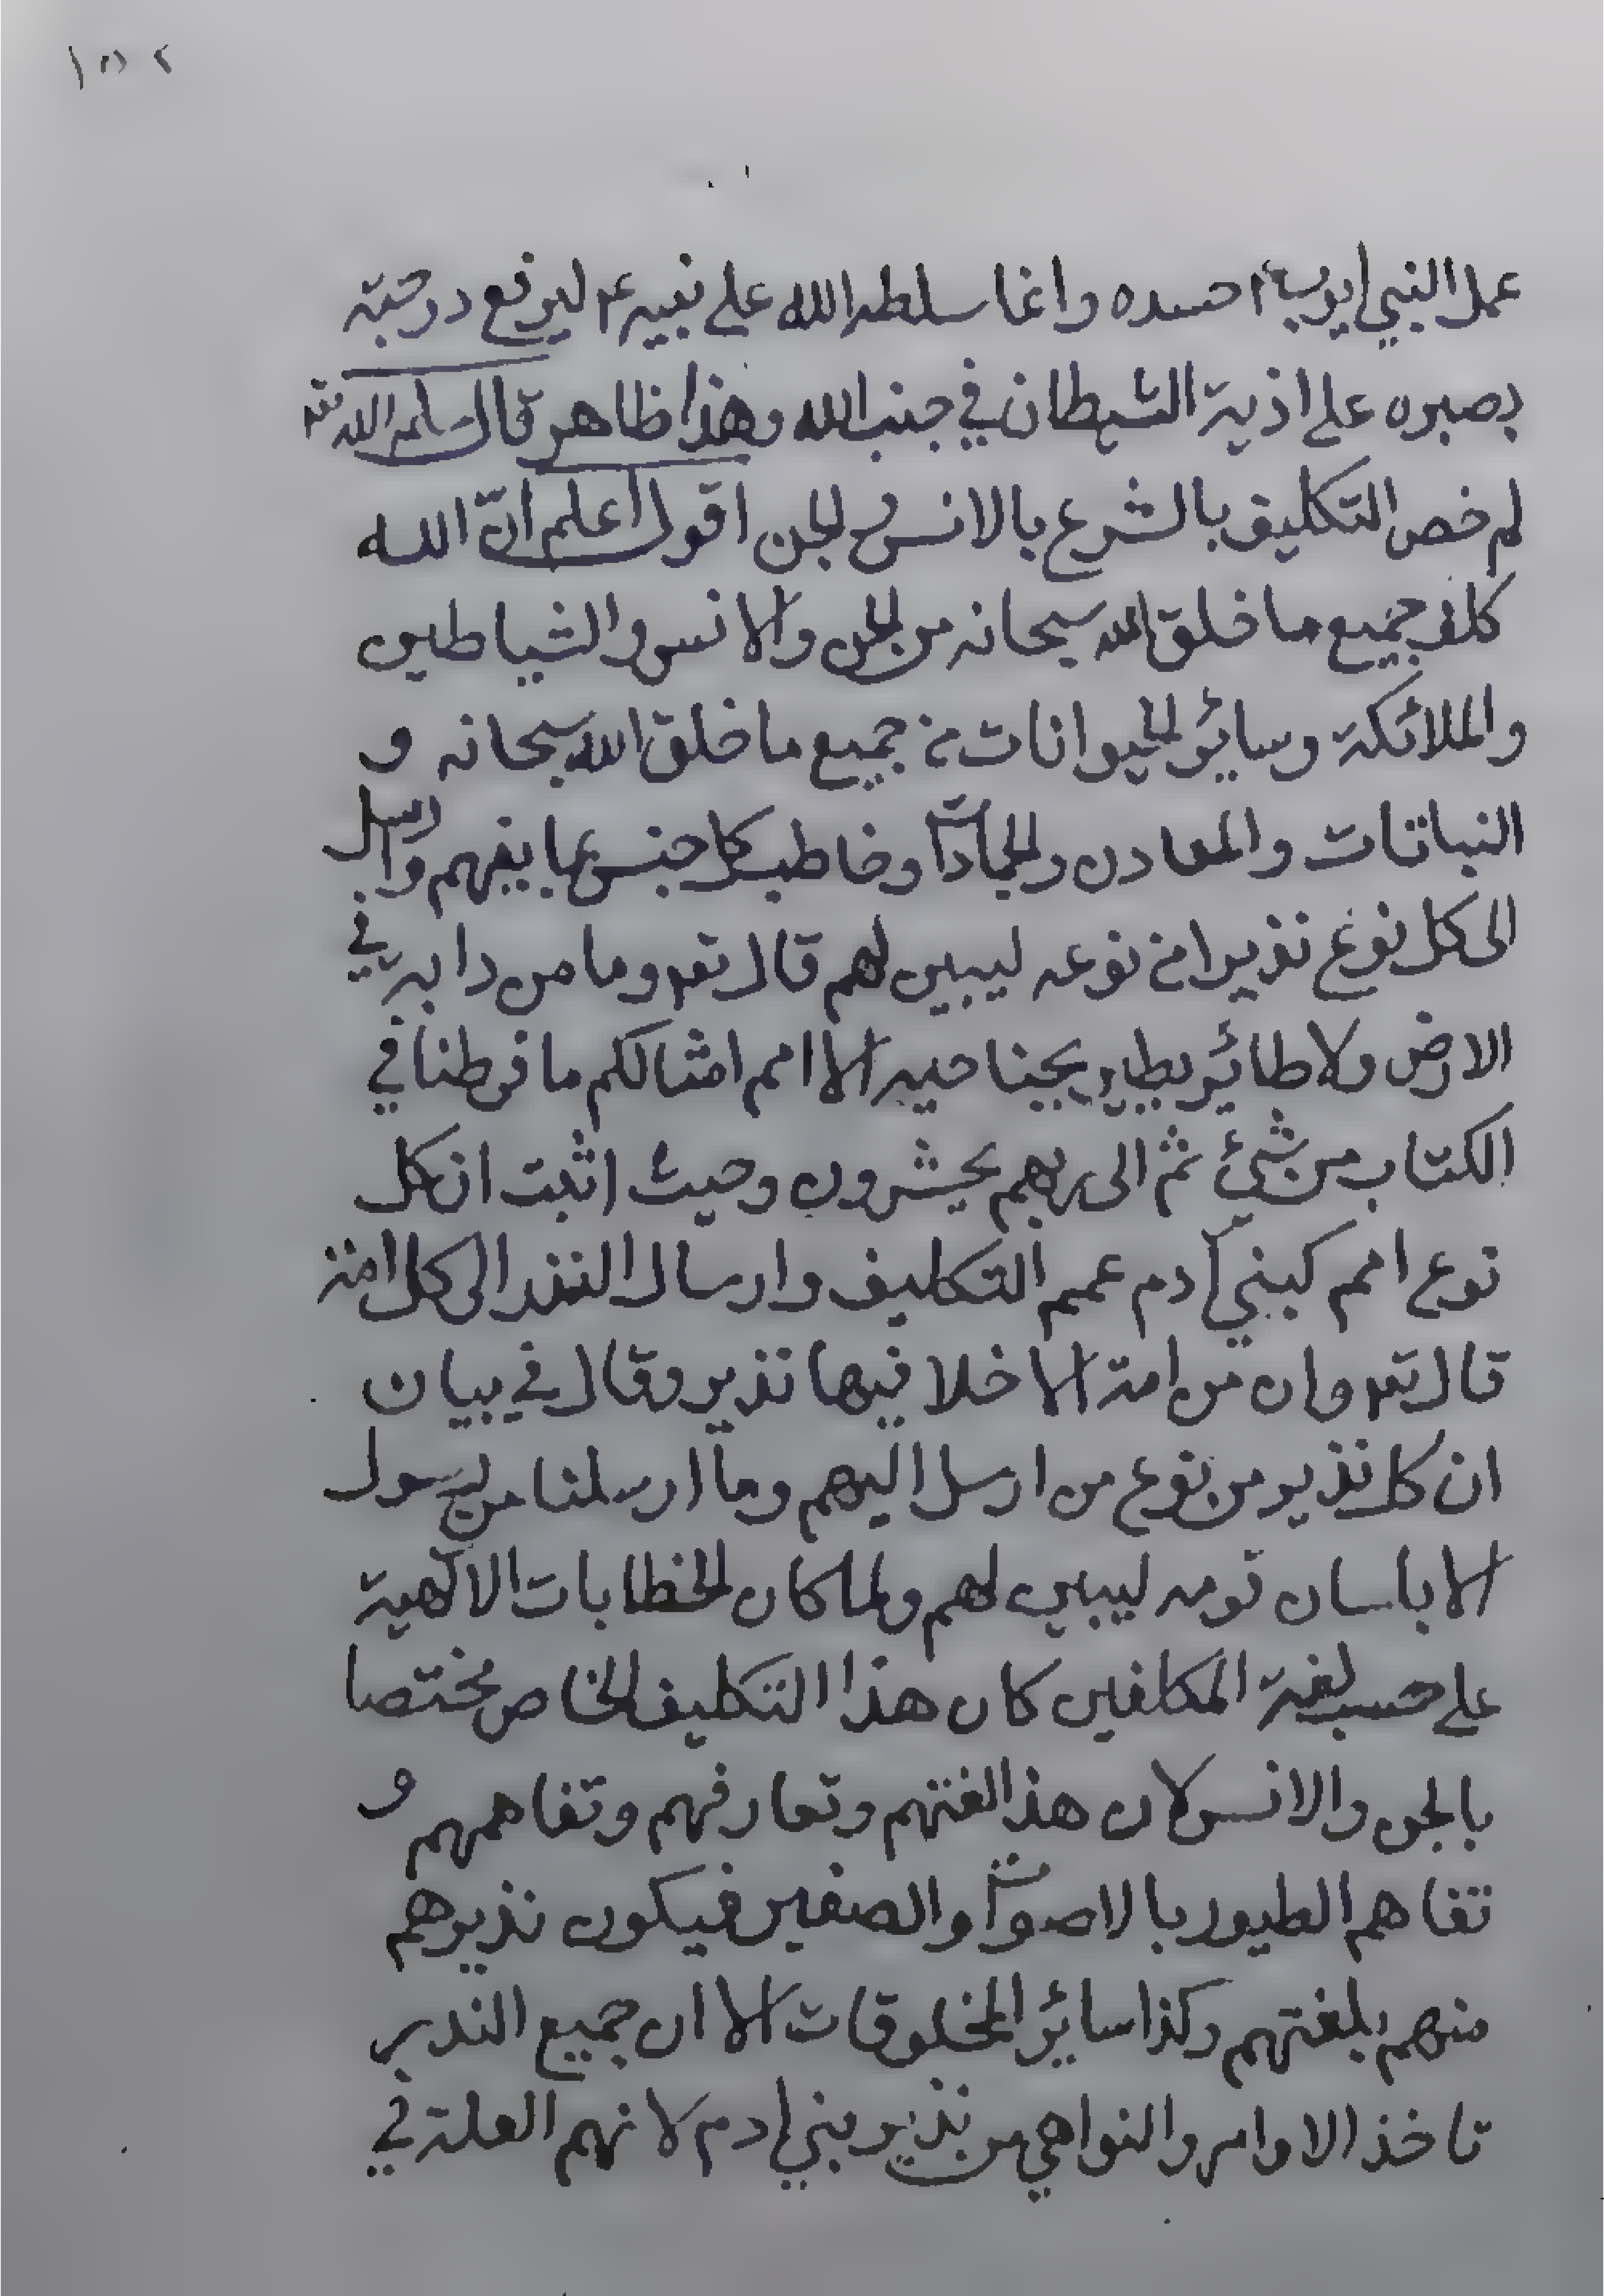 ١٥٢
عمل النبي ايوب ع حسده وانما سلطه الله على نبيه ع ليرفع درجته
بصبره على اذية الشيطان في جنب الله وهذا ظاهر قال سلمه الله تع
لم خص التكليف بالشرع بالانس والجن اقول اعلم انّ الله
كلف جميع ما خلق الله سبحانه من الجن والانس والشياطين
والملائكة وسائر الحيوانات من جميع ما خلق الله سبحانه و
النباتات والمعادن والجمادات وخاطب كل جنس بما يفهم وارسل
الى كل نوع نذيرا من نوعه ليبين لهم قال تعه وما من دابة في
الارض ولا طائر يطير بجناحيه الا امم امثالكم ما فرطنا في
الكتاب من شئ ثم الى ربهم يحشرون وحيث اثبت ان كل
نوع امم كبني آدم عمم التكليف وارسال النذر الى كل امة
قال تعه وان من امة الا خلا فيها نذير وقال في بيان
ان كل نذير من نوع من ارسل اليهم وما ارسلنا من رسول
الا بلسان قومه ليبين لهم ولما كان الخطابات الالهية
على حسب لغة المكلفين كان هذا التكليف الخاص مختصا
بالجن والانس لان هذا لغتهم وتعارفهم وتفاهمهم و
تفاهم الطيور بالاصوات والصفير فيكون نذيرهم
منهم بلغتهم وكذا سائر المخلوقات الا ان جميع النذر
تاخذ الاوامر والنواهي من نذير بني ادم لانهم العلة في